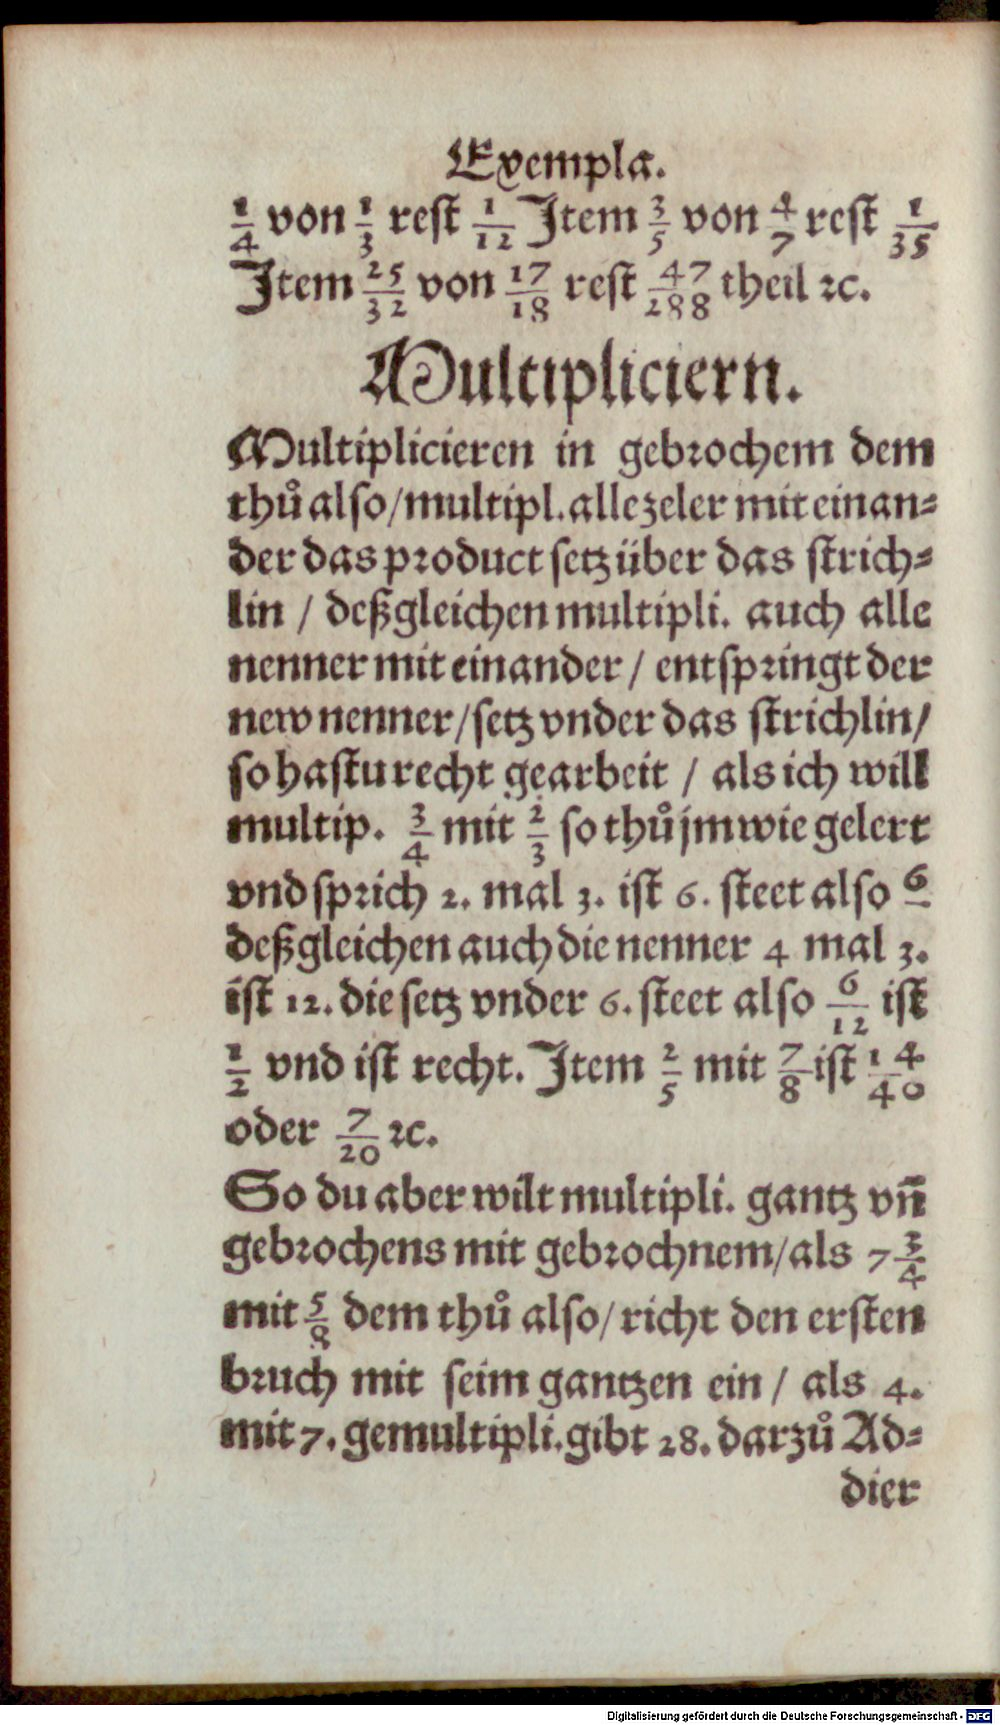 Exempla.
1/4 von 1/3 rest 1/12 Item 3/5 von 4/7 rest 1/35
Item 25/32 von 17/18 rest 47/288 theil ⁊c.
Multipliciern.
Multiplicieren in gebrochem dem
thuͦ also/multipl. alle zeler mit einan⸗
der das product setz über das strich⸗
lin / deßgleichen multipli. auch alle
nenner mit einander / entspringt der
new nenner/setz vnder das strichlin/
so hastu recht gearbeit / als ich will
multip. 3/4 mit 2/3 so thuͦ jm wie gelert
vnd sprich 2. mal 3. ist 6. steet also 6/
deßgleichen auch die nenner 4 mal 3.
ist 12. die setz vnder 6. steet also 6/12 ist
1/2 vnd ist recht. Item 2/5 mit 7/8 ist 14/40
oder 7/20 ⁊c.
So du aber wilt multipli. gantz vñ
gebrochens mit gebrochnem/als 7 3/4
mit 5/8 dem thuͦ also/richt den ersten
bruch mit seim gantzen ein / als 4.
mit 7. gemultipli. gibt 28. darzuͦ Ad⸗
dier
Digitalisierung gefördert durch die Deutsche Forschungsgemeinschaft - DFG